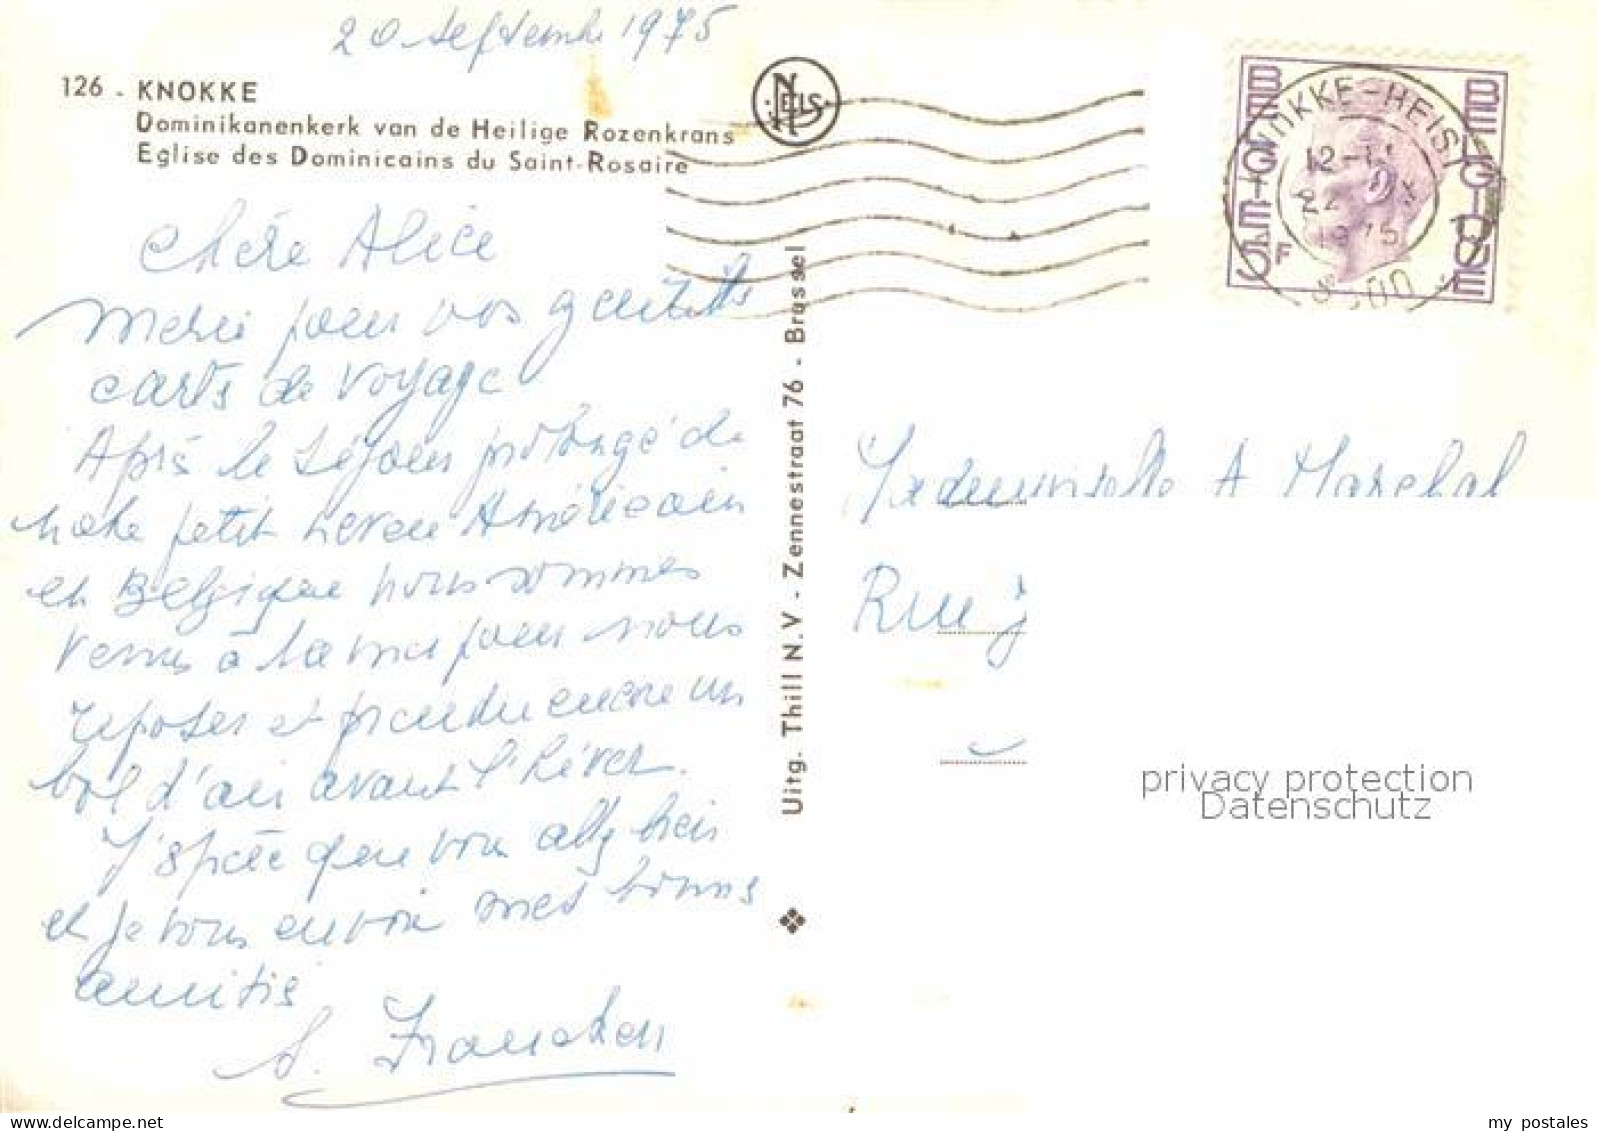 20 septembre 1975
126 . KNOKKE
Dominikanenkerk van de Heilige Rozenkrans
Eglise des Dominicains du Saint-Rosaire
NELS
BELGIE-BELGIQUE
KNOKKE-HEIST
12-
22
1975
F
BELGIQUE
Chère Alice
Merci pour vos gentilles
cartes de voyage
Après le séjour prolongé de
notre petit neveu Américain
en Belgique nous sommes
venus à la mer pour nous
reposer et prendre encore un
bol d'air avant l'hiver.
J'espère que vous allez bien
et je vous envoie mes bonnes
amitiés
Francken
Uitg. Thill N.V - Zennestraat 76 - Brussel
Mademoiselle A Marchal
Rue J
privacy protection
Datenschutz
delcampe.net
my_postales